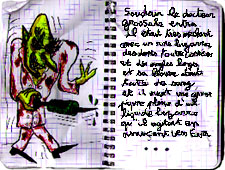 Soudain le docteur
grossata entra
il était très méchant
avec un rire bizarre
des dents toutes cassées
et des ongles longs
et sa blouse était
faite de sang
et il avait une grosse
piqure pleine d'un
liquide bizarre
qu'il agitait en
avançant vers